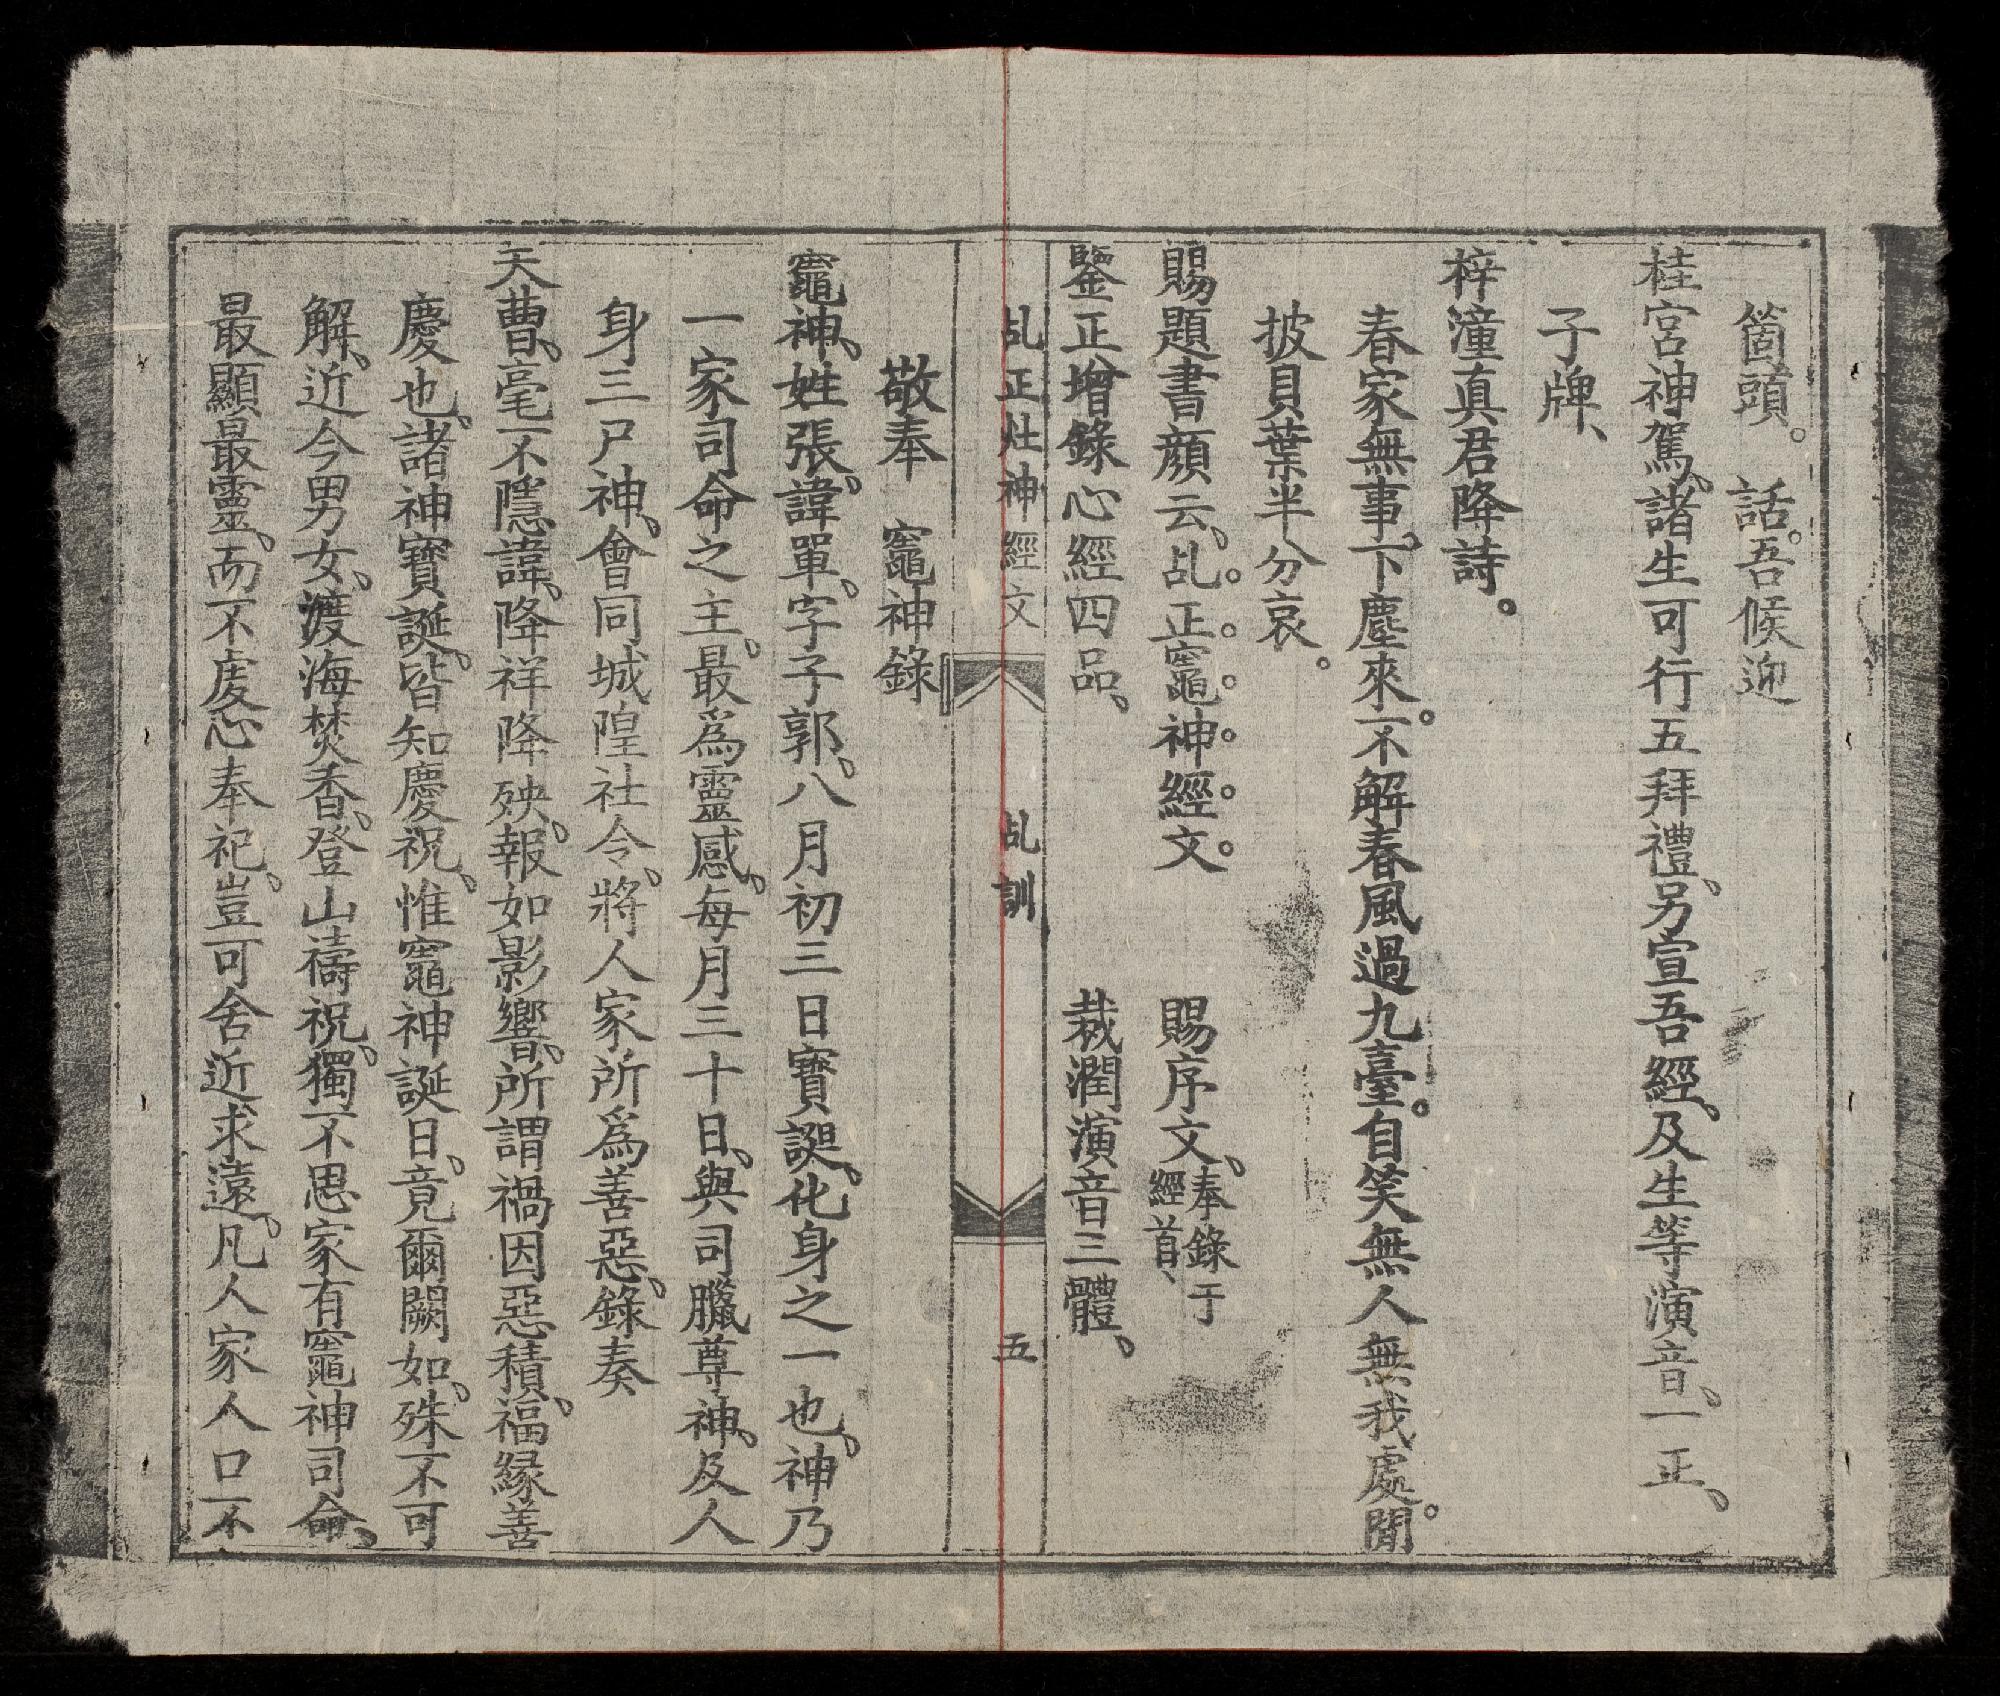 箇頭。話。吾候迎
桂宮神駕、諸生可行五拜禮、另宣吾經、及生等演音、一正、
子牌、
梓潼真君降詩。
春家無事下塵來。不解春風過九臺。自笑無人無我處。閒
披貝葉半分哀。
賜題書顏云、乩。正。竈。神。經。文。 賜序文、奉錄于經首、
鑒正增錄心經四品、 裁潤演音三體、
乩正灶神經文 乩訓 五
敬奉 竈神錄
竈神、姓張、諱單、字子郭、八月初三日寶誕、化身之一也、神乃
一家司命之主、最爲靈感、每月三十日、與司臘尊神、及人
身三尸神、會同城隍社令、將人家所爲善惡、錄奏
天曹、毫不隱諱、降祥降殃、報如影響、所謂禍因惡積、福緣善
慶也、諸神寶誕、皆知慶祝、惟竈神誕日、竟爾闕如、殊不可
解、近今男女、渡海焚香、登山禱祝、獨不思家有竈神司命、
最顯最靈、而不虔心奉祀、豈可舍近求遠、凡人家人口不